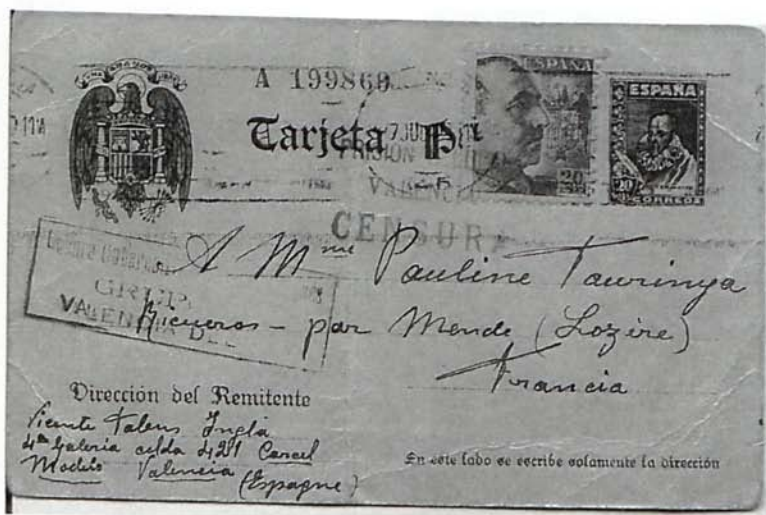 A 199869
ESPAÑA
20
ESPAÑA
20
CORREOS
Tarjeta P
PRISION
VALENCI
CENSURA
VALENCIA DEL
A Mme Pauline Taurinya
Rieucros - par Mende (Lozère)
Francia
Dirección del Remitente
Vicente Talens Inglá
4ª Galeria celda 421 Carcel
Modelo Valencia (Espagne)
En este lado se escribe solamente la dirección